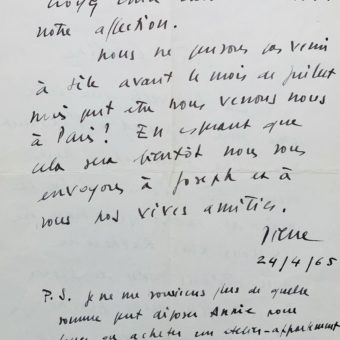 notre affection.
nous ne pensons pas venir
à Sète avant le mois de juillet
mais peut être nous verrons nous
à Paris ! En espérant que
cela sera bientôt nous vous
envoyons à Joseph et à
vous nos vives amitiés.
24/4/65
P.S. je ne me souviens plus de quelle
somme peut disposer Annie pour
ou acheter un atelier-appartement